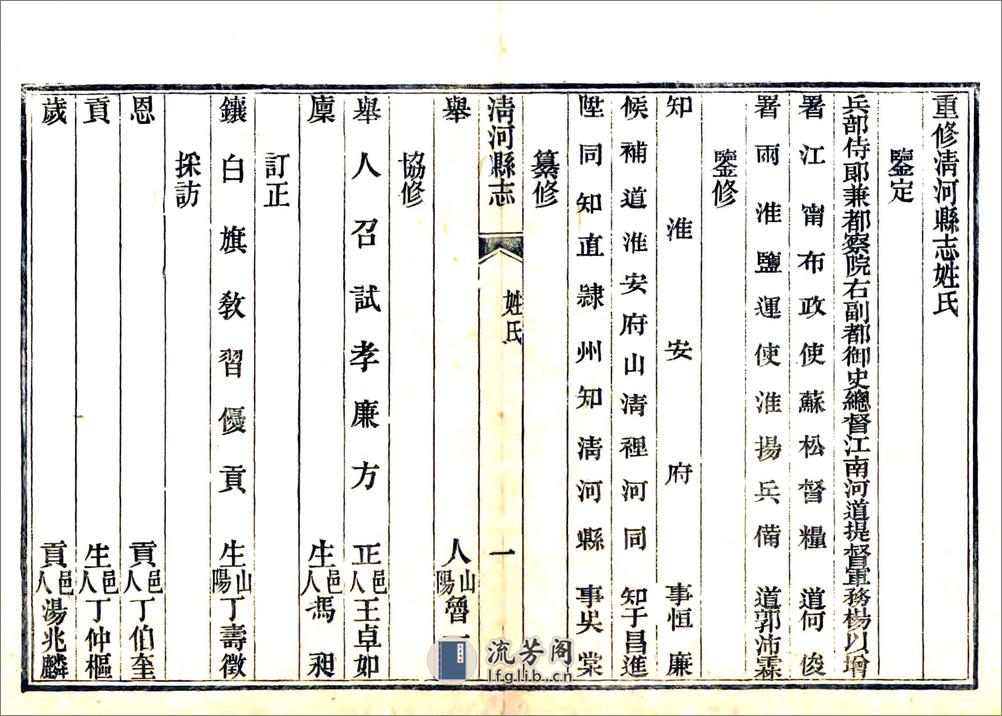 重修清河縣志姓氏
鑒定
兵部侍郎兼都察院右副都御史總督江南河道提督軍務楊以增
署江甯布政使蘇松督糧道何俊
署兩淮鹽運使淮揚兵備道郭沛霖
鑒修
知淮安府事恒廉
候補道淮安府山清裡河同知于昌進
陞同知直隷州知清河縣事吳棠
纂修
清河縣志 姓氏 一
舉人山陽魯一
協修
舉人召試孝廉方正邑人王卓如
廩生邑人馮昶
訂正
鑲白旗教習優貢生山陽丁壽徵
採訪
恩貢邑人丁伯奎
貢生邑人丁仲樞
歲貢邑人湯兆麟
流芳阁
lfglib.cn